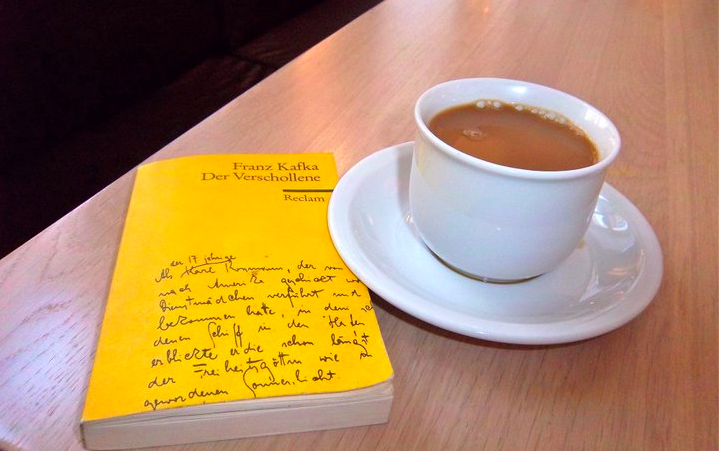 Franz Kafka
Der Verschollene
Reclam
der 17 jährige
Als Karl Rossmann, der von
nach Amerika geschickt
Dienstmädchen verführt und
bekommen hatte, in dem
denen Schiff in den Hafen
erblickte er die schon längst
der Freiheitsgöttin wie
gewordenen Sonnenlicht.